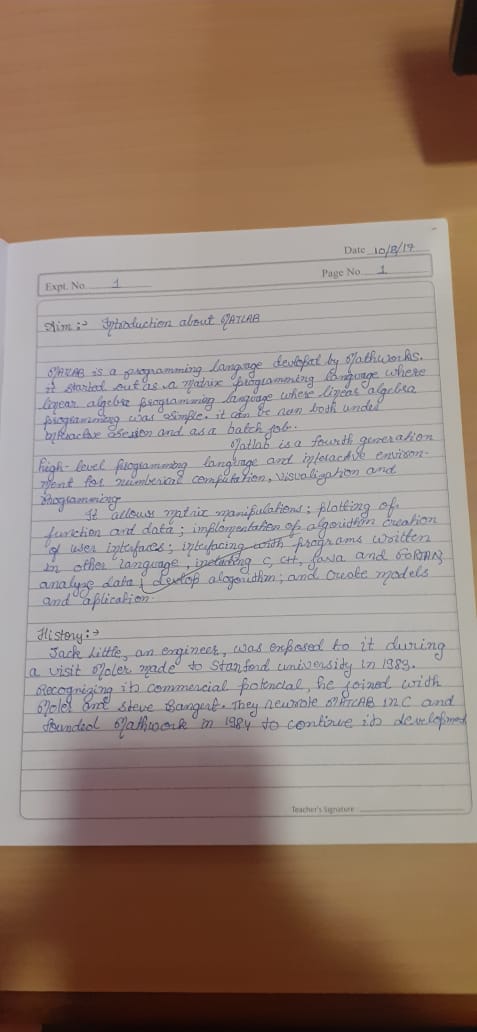 Date 10/8/17
Expt. No. 1
Page No. 1
Aim :-> Introduction about MATLAB
MATLAB is a programming language develpal by Mathworks.
it started out as a matrix programming language where
linear algebra programming language where linear algebra
programming was simple. it can be run both under
intractive session and as a batch job.
Matlab is a fourth generation
high level programming language and interactive environ-
ment for numberical computation, visualization and
programming
It allows matrix manipulations ; plotting of
function and data ; implementation of algorithm creation
of user interfaces ; interfacing with programs written
in other language, including c, c++, Java and FORTRAN;
analyze data ; develop alogorithm ; and create models
and aplication.
History :->
Jack little, an engineer, was exposed to it during
a visit Moler made to Stanford university in 1983.
Recognizing its commercial potencial, he joined with
Moler and Steve Bangert. They rewrote MATLAB in c and
founded Mathwork in 1984 to continue its developmen
Teacher's Signature